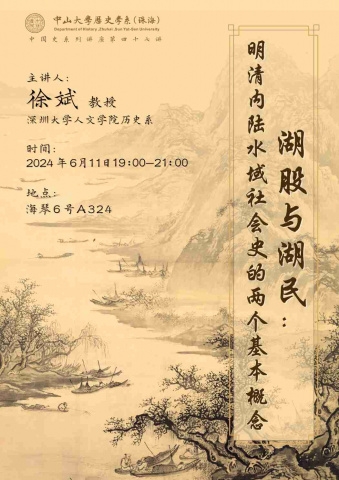 中山大学历史学系(珠海)
Department of History (Zhuhai), Sun Yat-sen University
中国史系列讲座第四十六讲
主讲人：
徐斌 教授
深圳大学人文学院历史系
时间：
2024年6月11日19:00—21:00
地点：
海琴6号A324
湖股与湖民：
明清内陆水域社会史的两个基本概念